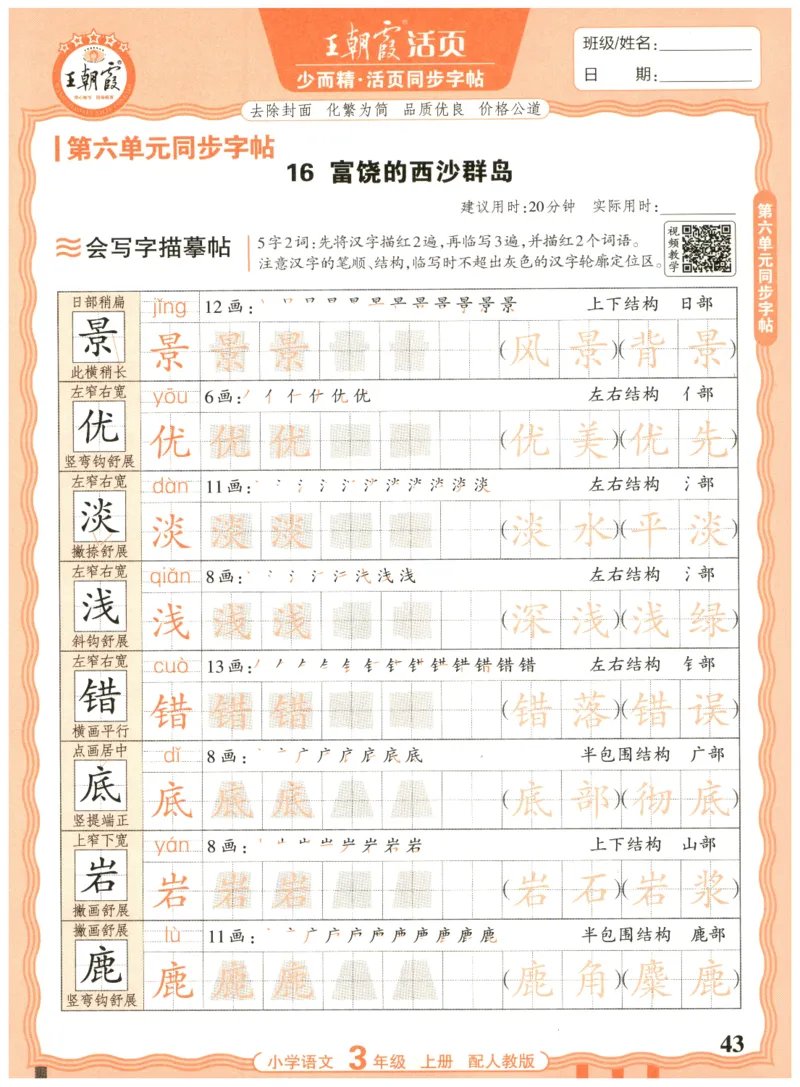 王朝霞活页
少而精·活页同步字帖
班级/姓名：
日 期：
王朝霞
去除封面 化繁为简 品质优良 价格公道
第六单元同步字帖
16 富饶的西沙群岛
建议用时：20分钟 实际用时：
会写字描摹帖
5字2词：先将汉字描红2遍，再临写3遍，并描红2个词语。
注意汉字的笔顺、结构，临写时不超出灰色的汉字轮廓定位区。
视频教学
第六单元同步字帖
日部稍扁
景
此横稍长
jǐng 12画： 景 上下结构 日部
景 景 景 （风景）（背景）
左窄右宽
优
竖弯钩舒展
yōu 6画： 优 左右结构 亻部
优 优 优 （优美）（优先）
左窄右宽
淡
撇捺舒展
dàn 11画： 淡 左右结构 氵部
淡 淡 淡 （淡水）（平淡）
左窄右宽
浅
斜钩舒展
qiǎn 8画： 浅 左右结构 氵部
浅 浅 浅 （深浅）（浅绿）
左窄右宽
错
横画平行
cuò 13画： 错 左右结构 钅部
错 错 错 （错落）（错误）
点画居中
底
竖提端正
dǐ 8画： 底 半包围结构 广部
底 底 底 （底部）（彻底）
上窄下宽
岩
撇画舒展
yán 8画： 岩 上下结构 山部
岩 岩 岩 （岩石）（岩浆）
撇画舒展
鹿
竖弯钩舒展
lù 11画： 鹿 半包围结构 鹿部
鹿 鹿 鹿 （鹿角）（麋鹿）
43
小学语文 3年级 上册 配人教版